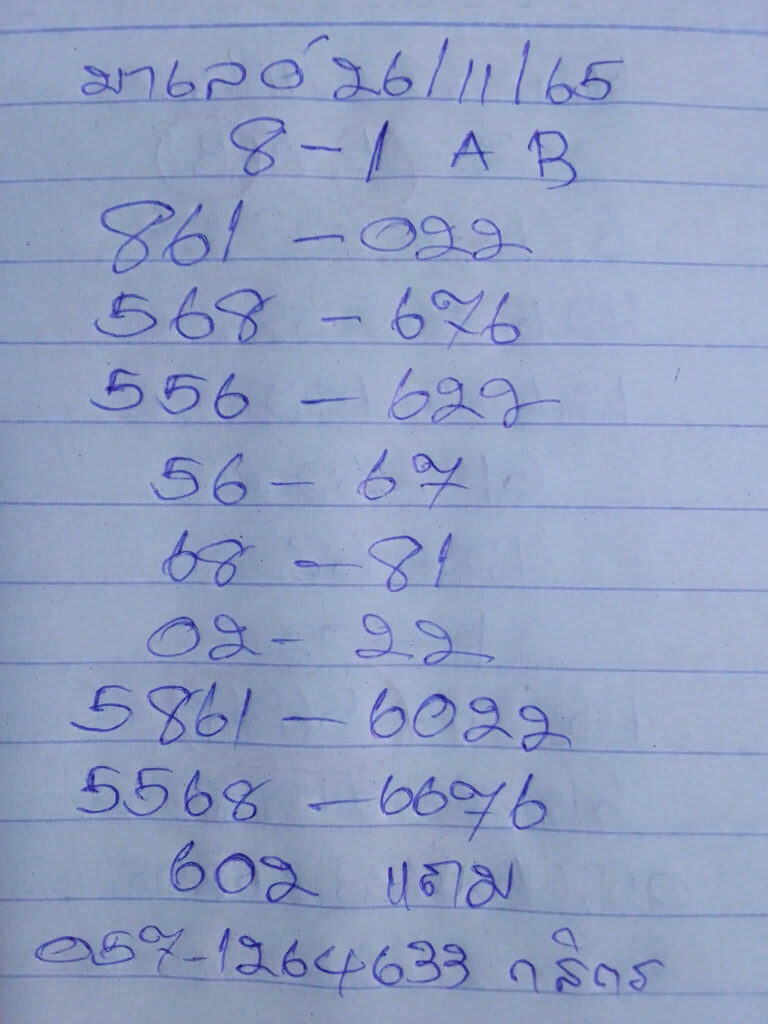 มาเลย์ 26/11/65
8-1 A B
861 - 022
568 - 676
556 - 622
56 - 67
68 - 81
02 - 22
5861 - 6022
5568 - 6676
602 แถม
057-1264633 กสิกร